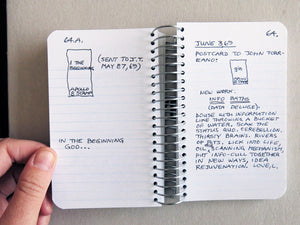 64.A.
I THE
BEGINNING
APOLLO
(SENT TO J.T.
MAY 27, 69)
IN THE BEGINNING
GOD...
64.
JUNE 3, 69
POSTCARD TO JOHN TORR-
EANO!
NEW WORK.
INFO BATHS
(DATA DELUGE).
DOUSE WITH INFORMATION
LIKE THROWING A BUCKET
OF WATER. SCAN THE
STATUS QUO. CEREBELLION.
THIRSTY BRAINS. RIVERS
OF BITS. LICK INTO LIFE,
OIL, SCANNING MECHANISM,
PUT INFO-CULL TOGETHER
IN NEW WAYS, IDEA
REJUVENATION. LOVE, L.